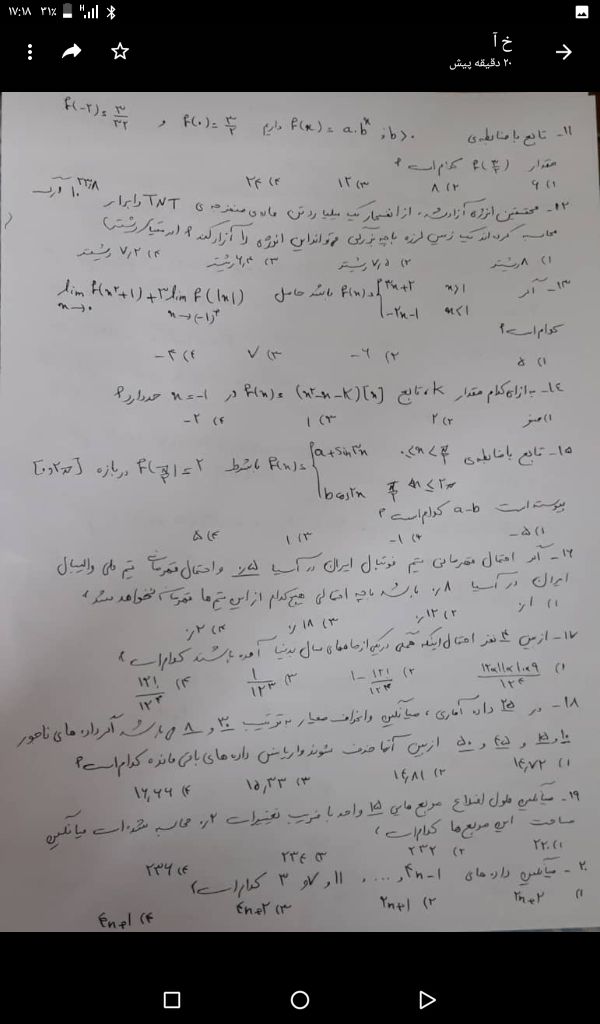 ۱۷:۱۸ ۳۱٪
خ آ
۲۰ دقیقه پیش
۱۱- تابع با ضابطه‌ی f(x) = a.b^x ; b>0 داریم f(0) = ۳/۲ و f(-۲) = ۳/۳۲
مقدار f(۳/۲) کدام است؟
۱) ۶ ۲) ۸ ۳) ۱۲ ۴) ۲۴
۱۲- محققین انرژی آزاد شده، از انفجار یک میلیارد تن ماده‌ی منفجره‌ی TNT را برابر ۱۰^۲۳٫۸ ارگ
محاسبه کرده‌اند یک زمین لرزه با چه بزرگی می‌تواند این انرژی را آزاد کند؟ (در مقیاس ریشتر)
۱) ۸ ریشتر ۲) ۷٫۵ ریشتر ۳) ۶٫۴ ریشتر ۴) ۷٫۲ ریشتر
۱۳- اگر f(x) = { ۳x+۲ x>1 , -۲x-1 x<1 باشد حاصل lim f(x²+1) + ۳ lim f(|x|) x→0 x→(-1)⁺
کدام است؟
۱) ۵ ۲) -۶ ۳) ۷ ۴) -۴
۱۴- به ازای کدام مقدار k، تابع f(x) = (x²-x-k)[x] در x = -1 حد دارد؟
۱) صفر ۲) ۲ ۳) ۱ ۴) -۲
۱۵- تابع با ضابطه‌ی f(x) = { a+sin۲x , b cos۲x با شرط f(π/۲) = ۲ در بازه [۰ و ۲π]
پیوسته است a-b کدام است؟
۱) -۵ ۲) -۱ ۳) ۱ ۴) ۵
۱۶- اگر احتمال قهرمانی تیم فوتبال ایران در آسیا و احتمال قهرمانی تیم ملی والیبال
ایران در آسیا ٪۸۰ باشد با چه احتمالی هیچ‌کدام از این تیم‌ها قهرمان نخواهد شد؟
۱) ٪۱۰ ۲) ٪۱۲ ۳) ٪۱۸ ۴) ٪۲۰
۱۷- از بین ۴ نفر احتمال اینکه همگی در یکی از ماه‌های سال بدنیا آمده باشند کدام است؟
۱) ۱۲×۱۱×۱۰×۹/۱۲^۴ ۲) ۱- ۱۲۱/۱۲^۴ ۳) ۱/۱۲^۳ ۴) ۱۲۱/۱۲^۴
۱۸- در ۲۵ داده آماری، میانگین و انحراف معیار به ترتیب ۳۰ و ۸ می‌باشد اگر داده‌های ناجور
۱۰ و ۱۵ و ۴۵ و ۵۰ از بین آنها حذف شوند واریانس داده‌های باقی مانده کدام است؟
۱) ۱۴٫۷۲ ۲) ۱۴٫۸۱ ۳) ۱۵٫۳۳ ۴) ۱۶٫۶۶
۱۹- میانگین طول اضلاع مربع‌هایی ۱۵ واحد با ضریب تغییرات محاسبه شده است میانگین
مساحت این مربع‌ها کدام است؟
۱) ۲۲۰ ۲) ۲۳۲ ۳) ۲۳۴ ۴) ۲۳۶
۲۰- میانگین داده‌های ۳ و ۷ و ۱۱ و .... و ۴n-1 کدام است؟
۱) ۲n+۲ ۲) ۲n+1 ۳) ۴n+۲ ۴) ۴n+1